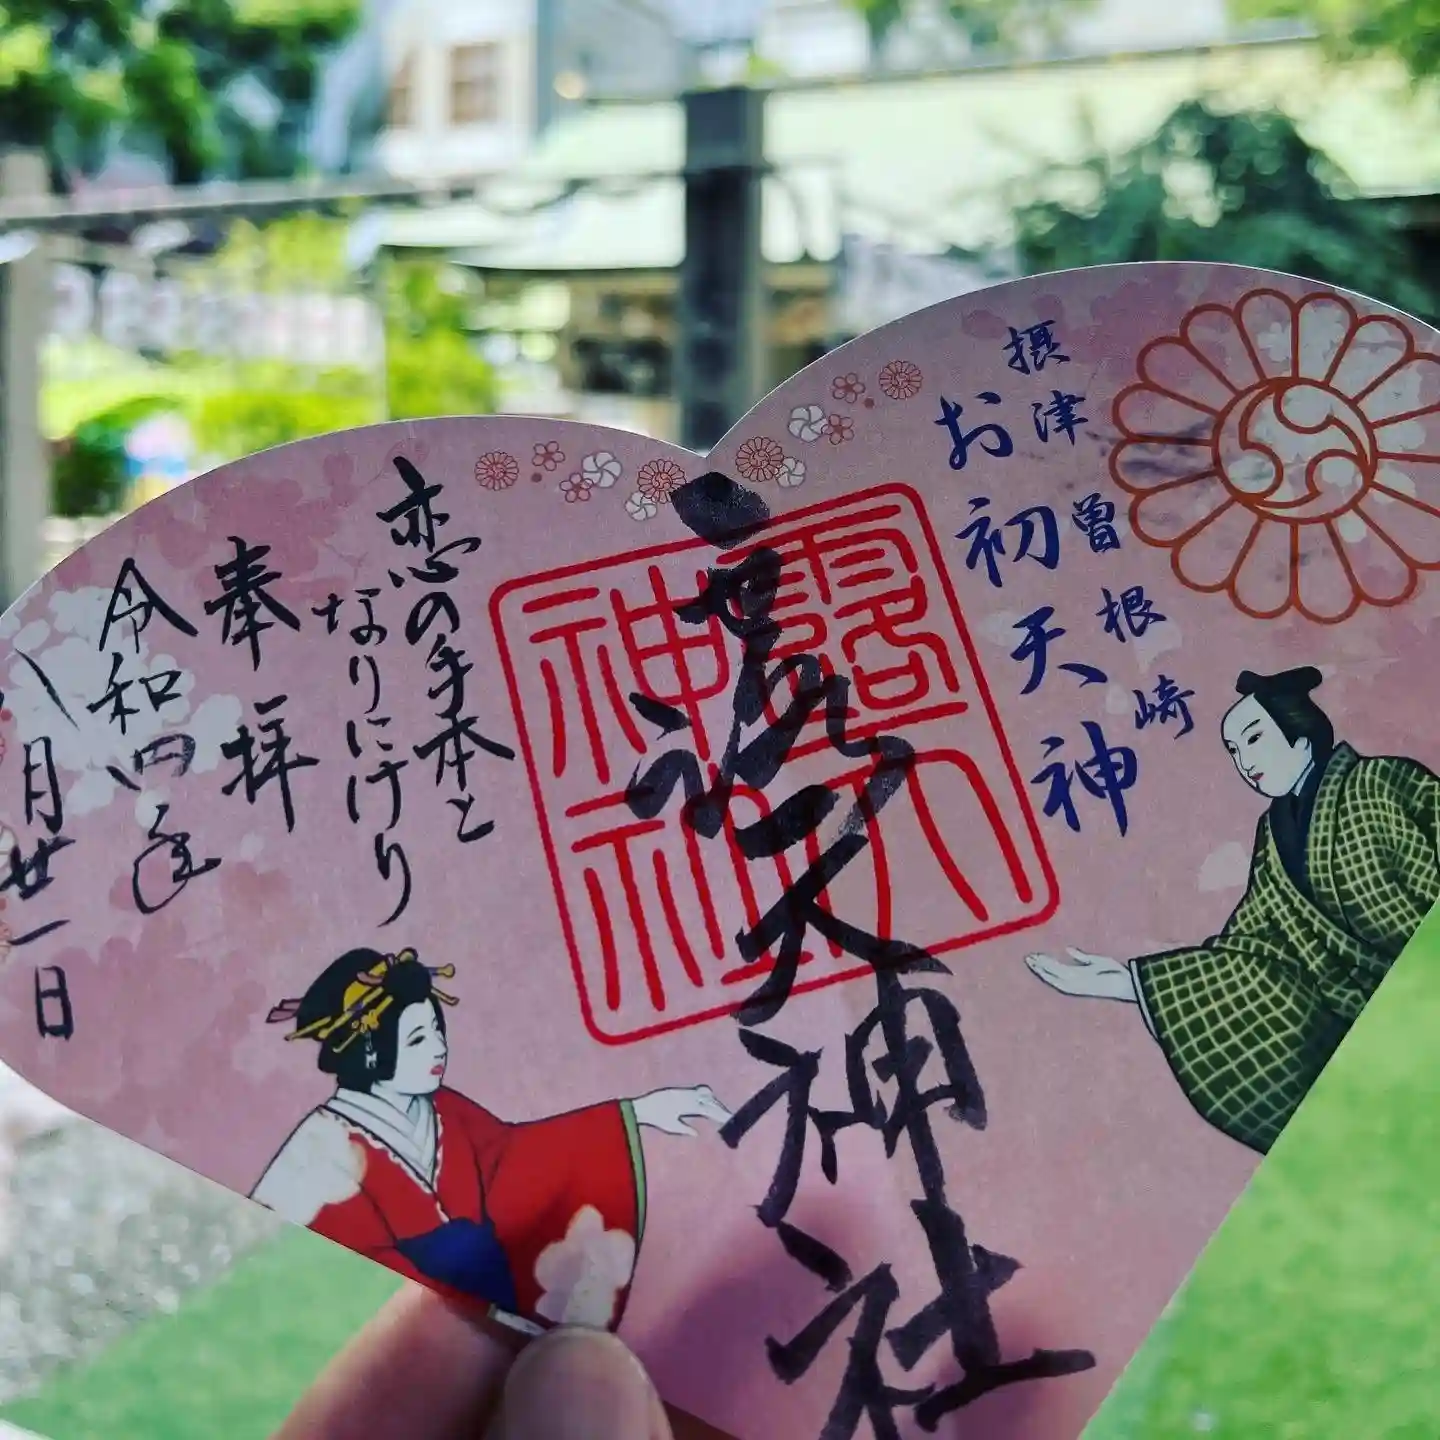 摂津 曽根崎
お初天神
露天神社
露天神社
恋の手本と
なりにけり
奉拝
令和四年
八月廿一日